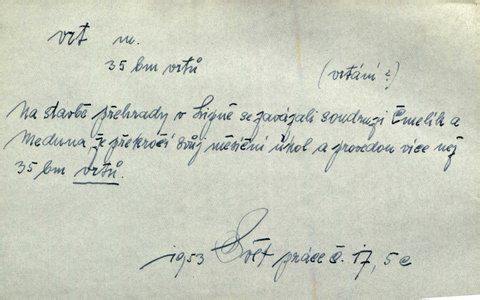 vrt m.
35 bm vrtů
(vrtání?)
Na stavbě přehrady v Ligně se zavázali soudruzi Čmelík a
Meduna, že překročí svůj měsíční úkol a provedou více než
35 bm vrtů.
1953 Svět práce č. 17, 5c